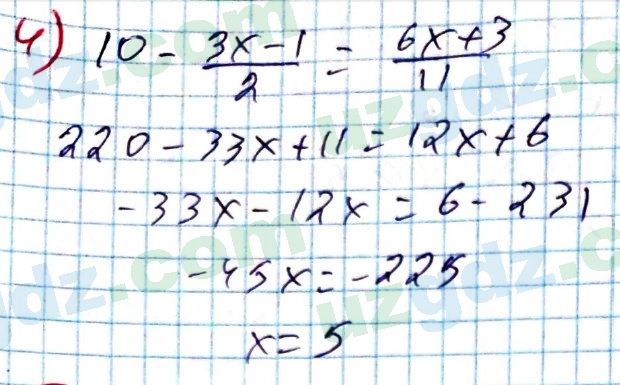 4) 10 - (3x-1)/2 = (6x+3)/11
220 - 33x + 11 = 12x + 6
-33x - 12x = 6 - 231
-45x = -225
x = 5
uzgdz.com